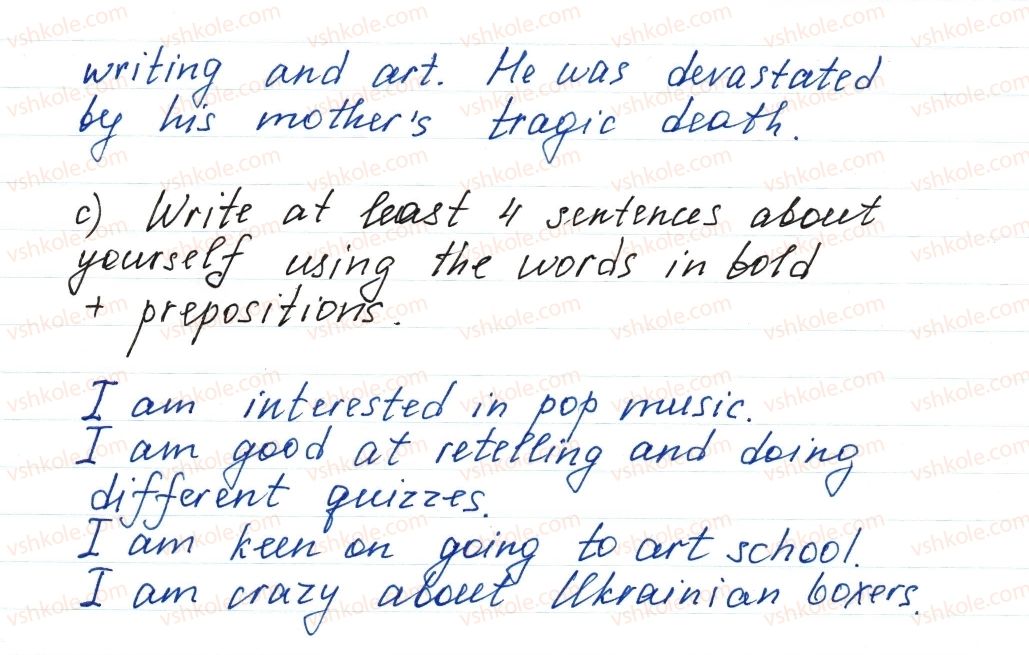 writing and art. He was devastated
by his mother's tragic death.
c) Write at least 4 sentences about
yourself using the words in bold
+ prepositions.
I am interested in pop music.
I am good at retelling and doing
different quizzes.
I am keen on going to art school.
I am crazy about Ukrainian boxers.